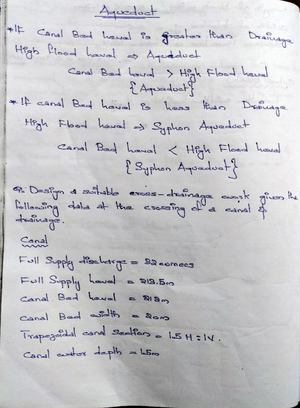 Aqueduct
*IF Canal Bed Leval is greater than Drainage
High flood Leval ⇒ Aqueduct
Canal Bed Leval > High Flood Leval
{Aqueduct}
* If canal Bed Leval is Less than Drainage
High Flood Leval ⇒ Syphon Aqueduct
Canal Bed Leval < High Flood Leval
{Syphon Aqueduct}
Q. Design a suitable cross-drainage work given the
following data at the crossing of a canal &
drainage.
Canal
Full Supply discharge = 32 cumecs
Full Supply Leval = 213.5m
Canal Bed Leval = 212m
Canal Bed width = 20m
Trapezoidal canal section = 1.5 H : 1V.
Canal water depth = 1.5m